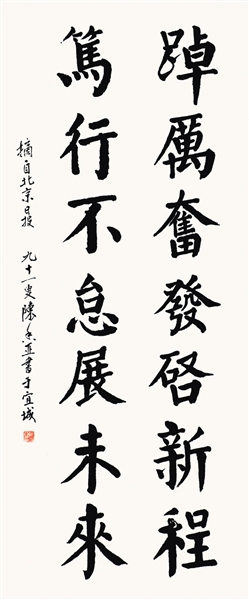 踔厲奮發啓新程
篤行不怠展未來
摘自北京日报 九十一叟陳書于宜城